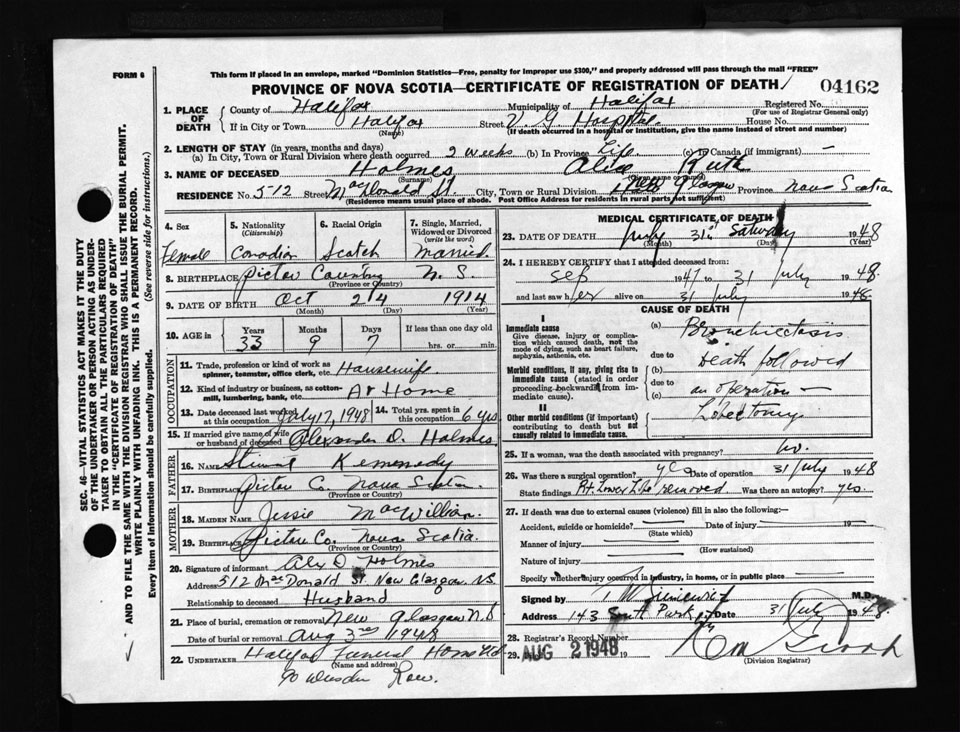 FORM 6
This form if placed in an envelope, marked "Dominion Statistics—Free, penalty for improper use $300," and properly addressed will pass through the mail "FREE"
PROVINCE OF NOVA SCOTIA—CERTIFICATE OF REGISTRATION OF DEATH
04162
1. PLACE OF DEATH
County of Halifax Municipality of Halifax Registered No.
(For use of Registrar General only)
If in City or Town Halifax Street V. G. Hospital House No.
(Name) (If death occurred in a hospital or institution, give the name instead of street and number)
2. LENGTH OF STAY (in years, months and days)
(a) In City, Town or Rural Division where death occurred 2 weeks (b) In Province Life (c) In Canada (if immigrant) —
3. NAME OF DECEASED Holmes Alice Ruth
(Surname)
RESIDENCE No. 512 Street MacDonald St. City, Town or Rural Division New Glasgow Province Nova Scotia
(Residence means usual place of abode. Post Office Address for residents in rural parts not sufficient)
4. Sex Female
5. Nationality (Citizenship) Canadian
6. Racial Origin Scotch
7. Single, Married, Widowed or Divorced (write the word) Married.
8. BIRTHPLACE Pictou County N. S.
(Province or Country)
9. DATE OF BIRTH Oct 24 1914
(Month) (Day) (Year)
10. AGE in Years Months Days If less than one day old
33 9 7 hrs. or min.
OCCUPATION
11. Trade, profession or kind of work as spinner, teamster, office clerk, etc. Housewife.
12. Kind of industry or business, as cotton-mill, lumbering, bank, etc. At Home
13. Date deceased last worked at this occupation July 17, 1948
14. Total yrs. spent in this occupation 6 yrs.
15. If married give name of wife or husband of deceased Alexander D. Holmes
FATHER
16. NAME Kennedy
17. BIRTHPLACE Pictou Co. Nova Scotia
(Province or Country)
MOTHER
18. MAIDEN NAME Jessie MacWilliam.
19. BIRTHPLACE Pictou Co. Nova Scotia.
(Province or Country)
20. Signature of informant Alex D Holmes
Address 512 MacDonald St. New Glasgow. N.S.
Relationship to deceased Husband
21. Place of burial, cremation or removal New Glasgow N.S
Date of burial or removal Aug 3rd 1948
22. UNDERTAKER Halifax Funeral Home Ltd
(Name and address)
90 Row.
MEDICAL CERTIFICATE OF DEATH
23. DATE OF DEATH July 31st Saturday 1948
(Month) (Day) (Year)
24. I HEREBY CERTIFY that I attended deceased from:
Sep 1947 to 31 July 1948
and last saw her alive on 31 July 1948.
CAUSE OF DEATH
I
Immediate cause
Give disease, injury or complication which caused death, not the mode of dying, such as heart failure, asphyxia, asthenia, etc.
(a) Bronchiectasis
due to
Morbid conditions, if any, giving rise to immediate cause (stated in order proceeding backwards from immediate cause).
(b) Death followed
due to
(c) an operation —
II
Other morbid conditions (if important) contributing to death but not causally related to immediate cause.
Lobectomy
25. If a woman, was the death associated with pregnancy? no.
26. Was there a surgical operation? yes Date of operation 31 July 1948
State findings Rt. Lower Lobe removed Was there an autopsy? yes.
27. If death was due to external causes (violence) fill in also the following:—
Accident, suicide or homicide? Date of injury 19—
(State which)
Manner of injury
(How sustained)
Nature of injury
Specify whether injury occurred in industry, in home, or in public place
Signed by M.D.
Address 143 South Park St Date 31 July 1948
28. Registrar's Record Number
29. AUG 2 1948 19
(Division Registrar)
SEC. 46—VITAL STATISTICS ACT MAKES IT THE DUTY
OF THE UNDERTAKER OR PERSON ACTING AS UNDER-
TAKER TO OBTAIN ALL THE PARTICULARS REQUIRED
IN THE "CERTIFICATE OF REGISTRATION OF DEATH"
AND TO FILE THE SAME WITH THE DIVISION REGISTRAR WHO SHALL ISSUE THE BURIAL PERMIT.
WRITE PLAINLY WITH UNFADING INK. THIS IS A PERMANENT RECORD.
Every item of Information should be carefully supplied. (See reverse side for instructions.)